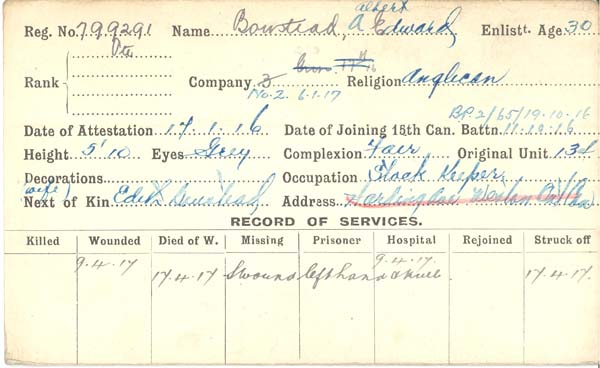 Albert
Reg. No. 799291 Name Boustead, A Edward, Enlistt. Age 30
Pte
17th 16
Rank Company 3 Religion Anglican
No. 2. 6.1.17
BP.2/65/19-10-16
Date of Attestation 17.1.16 Date of Joining 15th Can. Battn. 11.10.16
Height 5'10 Eyes Grey Complexion Fair Original Unit 134
Decorations Occupation Stock Keeper
(wife)
Next of Kin Edith Boustead Address Weston
RECORD OF SERVICES.
Killed Wounded Died of W. Missing Prisoner Hospital Rejoined Struck off
9.4.17 9.4.17.
17.4.17 S wound left hand & knee 17.4.17